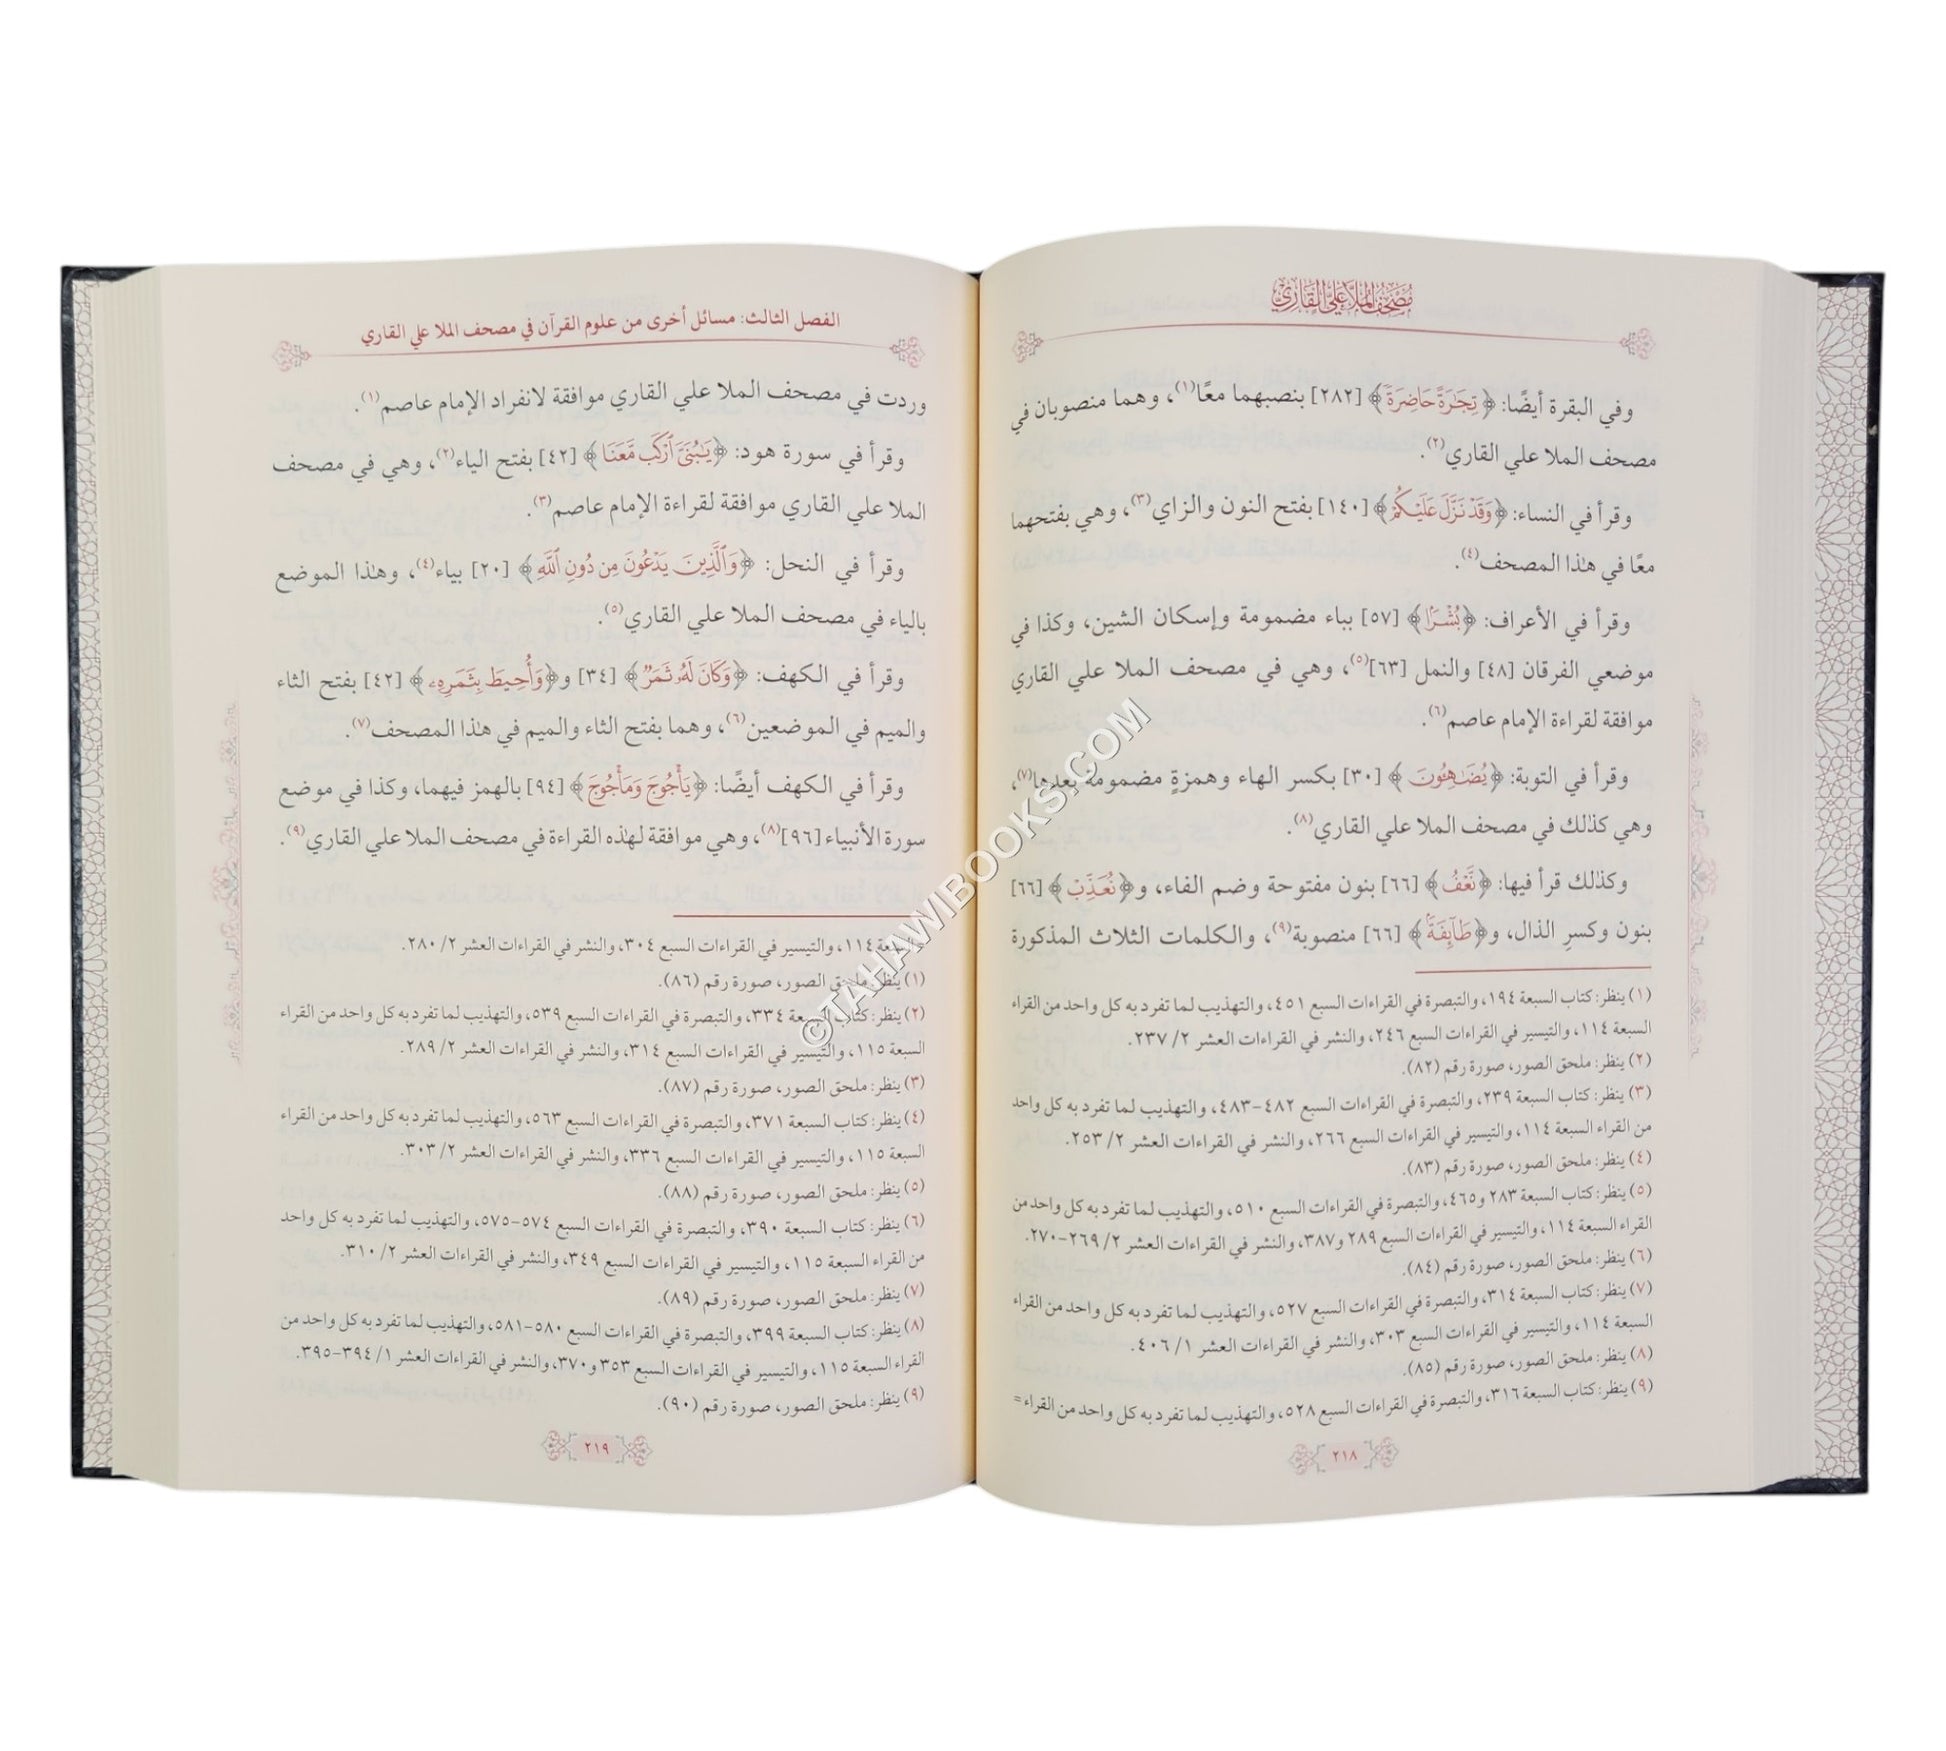 مصحف الملا علي القاري
وفي البقرة أيضًا: ﴿تِجَٰرَةً حَاضِرَةً﴾ [٢٨٢] بنصبهما معًا(١)، وهما منصوبان في
مصحف الملا علي القاري(٢).
وقرأ في النساء: ﴿وَقَدْ نَزَّلَ عَلَيْكُمْ﴾ [١٤٠] بفتح النون والزاي(٣)، وهي بفتحهما
معًا في هٰذا المصحف(٤).
وقرأ في الأعراف: ﴿بُشْرًا﴾ [٥٧] بباء مضمومة وإسكان الشين، وكذا في
موضعي الفرقان [٤٨] والنمل [٦٣](٥)، وهي في مصحف الملا علي القاري
موافقة لقراءة الإمام عاصم(٦).
وقرأ في التوبة: ﴿يُضَٰهِـُٔونَ﴾ [٣٠] بكسر الهاء وهمزةٍ مضمومة بعدها(٧)،
وهي كذٰلك في مصحف الملا علي القاري(٨).
وكذٰلك قرأ فيها: ﴿نَّعْفُ﴾ [٦٦] بنون مفتوحة وضم الفاء، و﴿نُعَذِّبْ﴾ [٦٦]
بنون وكسرِ الذال، و﴿طَآئِفَةً﴾ [٦٦] منصوبة(٩)، والكلمات الثلاث المذكورة
(١) ينظر: كتاب السبعة ١٩٤، والتبصرة في القراءات السبع ٤٥١، والتهذيب لما تفرد به كل واحد من القراء
السبعة ١١٤، والتيسير في القراءات السبع ٢٤٦، والنشر في القراءات العشر ٢/ ٢٣٧.
(٢) ينظر: ملحق الصور، صورة رقم (٨٢).
(٣) ينظر: كتاب السبعة ٢٣٩، والتبصرة في القراءات السبع ٤٨٢-٤٨٣، والتهذيب لما تفرد به كل واحد
من القراء السبعة ١١٤، والتيسير في القراءات السبع ٢٦٦، والنشر في القراءات العشر ٢/ ٢٥٣.
(٤) ينظر: ملحق الصور، صورة رقم (٨٣).
(٥) ينظر: كتاب السبعة ٢٨٣ و٤٦٥، والتبصرة في القراءات السبع ٥١٠، والتهذيب لما تفرد به كل واحد من
القراء السبعة ١١٤، والتيسير في القراءات السبع ٢٨٩ و٣٨٧، والنشر في القراءات العشر ٢/ ٢٦٩-٢٧٠.
(٦) ينظر: ملحق الصور، صورة رقم (٨٤).
(٧) ينظر: كتاب السبعة ٣١٤، والتبصرة في القراءات السبع ٥٢٧، والتهذيب لما تفرد به كل واحد من القراء
السبعة ١١٤، والتيسير في القراءات السبع ٣٠٣، والنشر في القراءات العشر ١/ ٤٠٦.
(٨) ينظر: ملحق الصور، صورة رقم (٨٥).
(٩) ينظر: كتاب السبعة ٣١٦، والتبصرة في القراءات السبع ٥٢٨، والتهذيب لما تفرد به كل واحد من القراء =
٢١٨
الفصل الثالث: مسائل أخرى من علوم القرآن في مصحف الملا علي القاري
وردت في مصحف الملا علي القاري موافقة لانفراد الإمام عاصم(١).
وقرأ في سورة هود: ﴿يَٰبُنَيَّ ٱرْكَب مَّعَنَا﴾ [٤٢] بفتح الياء(٢)، وهي في مصحف
الملا علي القاري موافقة لقراءة الإمام عاصم(٣).
وقرأ في النحل: ﴿وَٱلَّذِينَ يَدْعُونَ مِن دُونِ ٱللَّهِ﴾ [٢٠] بياء(٤)، وهٰذا الموضع
بالياء في مصحف الملا علي القاري(٥).
وقرأ في الكهف: ﴿وَكَانَ لَهُۥ ثَمَرٌ﴾ [٣٤] و﴿وَأُحِيطَ بِثَمَرِهِۦ﴾ [٤٢] بفتح الثاء
والميم في الموضعين(٦)، وهما بفتح الثاء والميم في هٰذا المصحف(٧).
وقرأ في الكهف أيضًا: ﴿يَأْجُوجَ وَمَأْجُوجَ﴾ [٩٤] بالهمز فيهما، وكذا في موضع
سورة الأنبياء [٩٦](٨)، وهي موافقة لهٰذه القراءة في مصحف الملا علي القاري(٩).
السبعة ١١٤، والتيسير في القراءات السبع ٣٠٤، والنشر في القراءات العشر ٢/ ٢٨٠.
(١) ينظر: ملحق الصور، صورة رقم (٨٦).
(٢) ينظر: كتاب السبعة ٣٣٤، والتبصرة في القراءات السبع ٥٣٩، والتهذيب لما تفرد به كل واحد من القراء
السبعة ١١٥، والتيسير في القراءات السبع ٣١٤، والنشر في القراءات العشر ٢/ ٢٨٩.
(٣) ينظر: ملحق الصور، صورة رقم (٨٧).
(٤) ينظر: كتاب السبعة ٣٧١، والتبصرة في القراءات السبع ٥٦٣، والتهذيب لما تفرد به كل واحد من القراء
السبعة ١١٥، والتيسير في القراءات السبع ٣٣٦، والنشر في القراءات العشر ٢/ ٣٠٣.
(٥) ينظر: ملحق الصور، صورة رقم (٨٨).
(٦) ينظر: كتاب السبعة ٣٩٠، والتبصرة في القراءات السبع ٥٧٤-٥٧٥، والتهذيب لما تفرد به كل واحد
من القراء السبعة ١١٥، والتيسير في القراءات السبع ٣٤٩، والنشر في القراءات العشر ٢/ ٣١٠.
(٧) ينظر: ملحق الصور، صورة رقم (٨٩).
(٨) ينظر: كتاب السبعة ٣٩٩، والتبصرة في القراءات السبع ٥٨٠-٥٨١، والتهذيب لما تفرد به كل واحد من
القراء السبعة ١١٥، والتيسير في القراءات السبع ٣٥٣ و٣٧٠، والنشر في القراءات العشر ١/ ٣٩٤-٣٩٥.
(٩) ينظر: ملحق الصور، صورة رقم (٩٠).
٢١٩
©TAHAWIBOOKS.COM